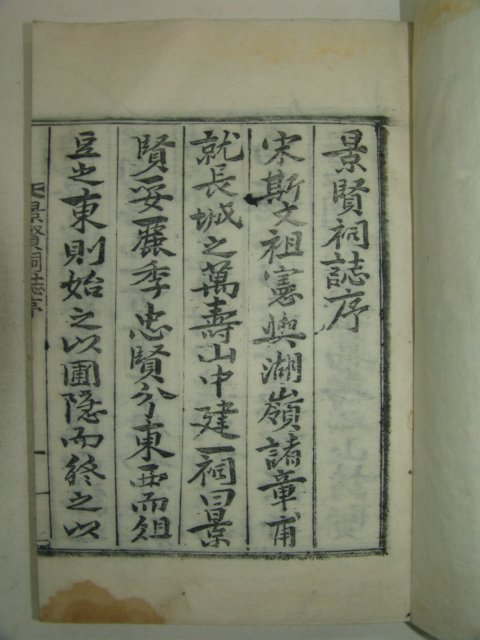 景賢祠誌序
宋斯文祖憲與湖嶺諸章甫
就長城之萬壽山中建一祠曰景
賢妥麗季忠賢分東西而俎
豆之東則始之以圃隱而終之以
景賢祠誌序
一